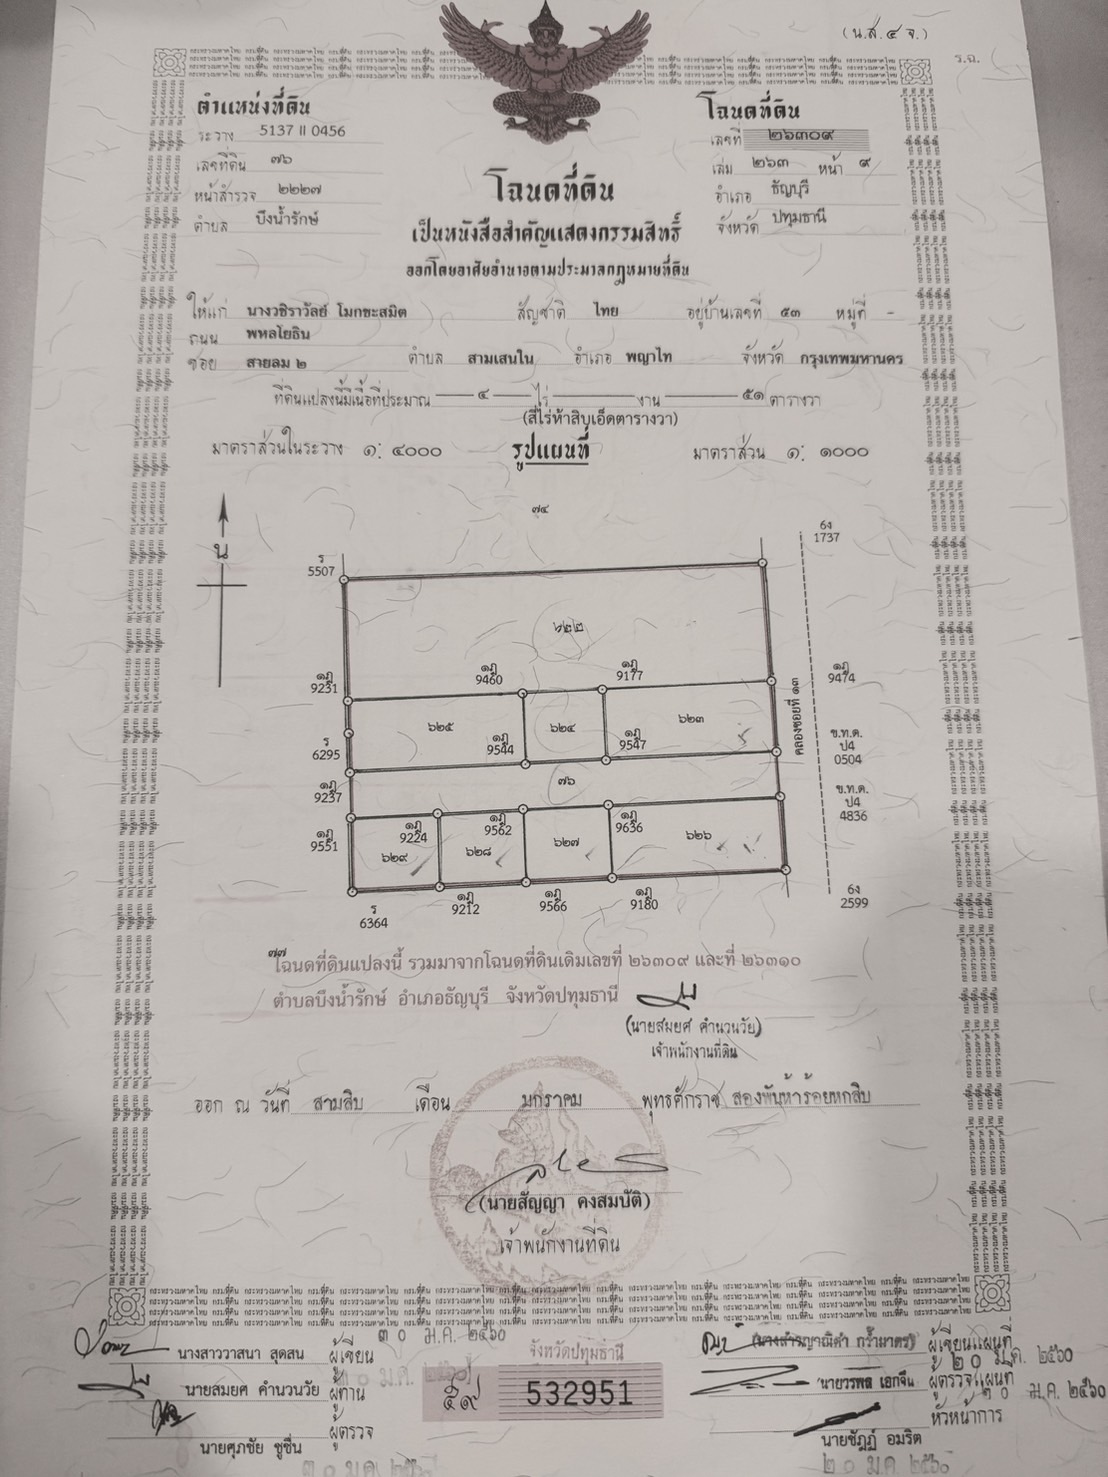 (น.ส.๔ จ.)
ร.ฉ.
ตำแหน่งที่ดิน
ระวาง 5137 II 0456
เลขที่ดิน ๗๖
หน้าสำรวจ ๒๒๒๗
ตำบล บึงน้ำรักษ์
โฉนดที่ดิน
เลขที่ ๒๖๓๐๙
เล่ม ๒๖๓ หน้า ๙
อำเภอ ธัญบุรี
จังหวัด ปทุมธานี
โฉนดที่ดิน
เป็นหนังสือสำคัญแสดงกรรมสิทธิ์
ออกโดยอาศัยอำนาจตามประมวลกฎหมายที่ดิน
ให้แก่ นางวชิราวัลย์ โมกขะสมิต สัญชาติ ไทย อยู่บ้านเลขที่ ๕๓ หมู่ที่ -
ถนน พหลโยธิน
ซอย สายลม ๒ ตำบล สามเสนใน อำเภอ พญาไท จังหวัด กรุงเทพมหานคร
ที่ดินแปลงนี้มีเนื้อที่ประมาณ ๔ ไร่ - งาน ๕๑ ตารางวา
(สี่ไร่ห้าสิบเอ็ดตารางวา)
มาตราส่วนในระวาง ๑: ๔๐๐๐ รูปแผนที่ มาตราส่วน ๑: ๑๐๐๐
๗๔
6ง
1737
น
ร
5507
๖๒๒
๑ฎ
9231
๑ฎ
9460
๑ฎ
9177
๑ฎ
9474
๖๒๕ ๖๒๔ ๖๒๓
คลองซอยที่ ๑๓
ร
6295
๑ฎ
9544
๑ฎ
9547
ข.ท.ด.
ป4
0504
๗๖
๑ฎ
9237
ข.ท.ด.
ป4
4836
๑ฎ
9551
๑ฎ
9224
๑ฎ
9562
๑ฎ
9636
๖๒๙ ๖๒๘ ๖๒๗ ๖๒๖
ร
6364
๑ฎ
9212
๑ฎ
9566
๑ฎ
9180
6ง
2599
๗๗
โฉนดที่ดินแปลงนี้ รวมมาจากโฉนดที่ดินเดิมเลขที่ ๒๖๓๐๙ และที่ ๒๖๓๑๐
ตำบลบึงน้ำรักษ์ อำเภอธัญบุรี จังหวัดปทุมธานี
(นายสมยศ คำนวนวัย)
เจ้าพนักงานที่ดิน
ออก ณ วันที่ สามสิบ เดือน มกราคม พุทธศักราช สองพันห้าร้อยหกสิบ
(นายสัญญา คงสมบัติ)
เจ้าพนักงานที่ดิน
๓๐ ม.ค. ๒๕๖๐
นางสาววาสนา สุดสน ผู้เขียน
นายสมยศ คำนวนวัย ผู้ทาน
นายศุภชัย ชูชื่น ผู้ตรวจ
จังหวัดปทุมธานี
๕๙ 532951
ผู้เขียนแผนที่
๒๐ ม.ค. ๒๕๖๐
นายวรพล เอกจีน ผู้ตรวจแผนที่
๓๐ ม.ค. ๒๕๖๐
หัวหน้าการ
นายชัฏฏ์ อมริต
๒๐ ม.ค. ๒๕๖๐